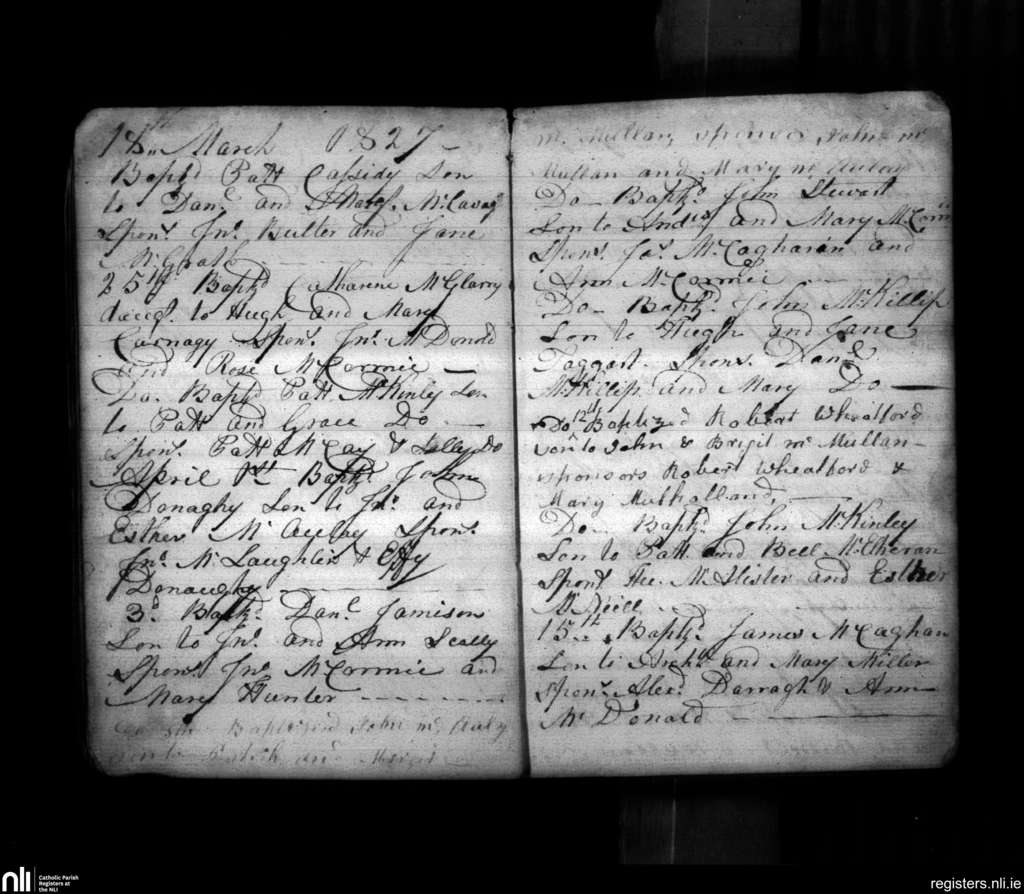 18th March 1827 -
Baptd Patt Cassidy Son
to Danl and Margt McCavag
Sponrs Jno Butler and Jane
McGrath
25th Baptd Catharine McGlarry
daugt to Hugh and Mary
Carnagy Sponrs Jno McDonold
and Rose McCormic —
Do Baptd Patt McKinley Son
to Patt and Grace Do —
Sponrs Patt McCay & Do
April 1st Baptd John
Donaghy Son to Jno and
Esther McAuley Sponrs
Jno McLaughlin & Effy
Donaughy
3d Baptd Danl Jamison
Son to Jno and Ann Scally
Sponrs Jno McCormic and
Mary Hunter - - - -
Baptized John mc Auly
son to and
mc Mullan, sponsors John mc
Mullan and Mary mc Auley
Do - Baptd Jim Stewart
Son to Andw and Mary McCormic
Sponrs Jas McCagharan and
Ann McCormic
Do - Baptd John McKillip
Son to Hugh and Jane
Taggart. Sponrs Danl
McKillip and Mary Do —
Do 12th Baptized Robert Wheatford
son to John & Brigit mc Mullan -
sponsors Robert Wheatford &
Mary Mulholland,
Do - Baptd John McKinley
Son to Patt and Bell McElheran
Sponrs McAlister and Esther
McNeill
15th Baptd James McCaghan
Son to Archd and Mary Miller
Sponrs Alexr Darragh & Ann
McDonald
nli
Catholic Parish
Registers at
the NLI
registers.nli.ie